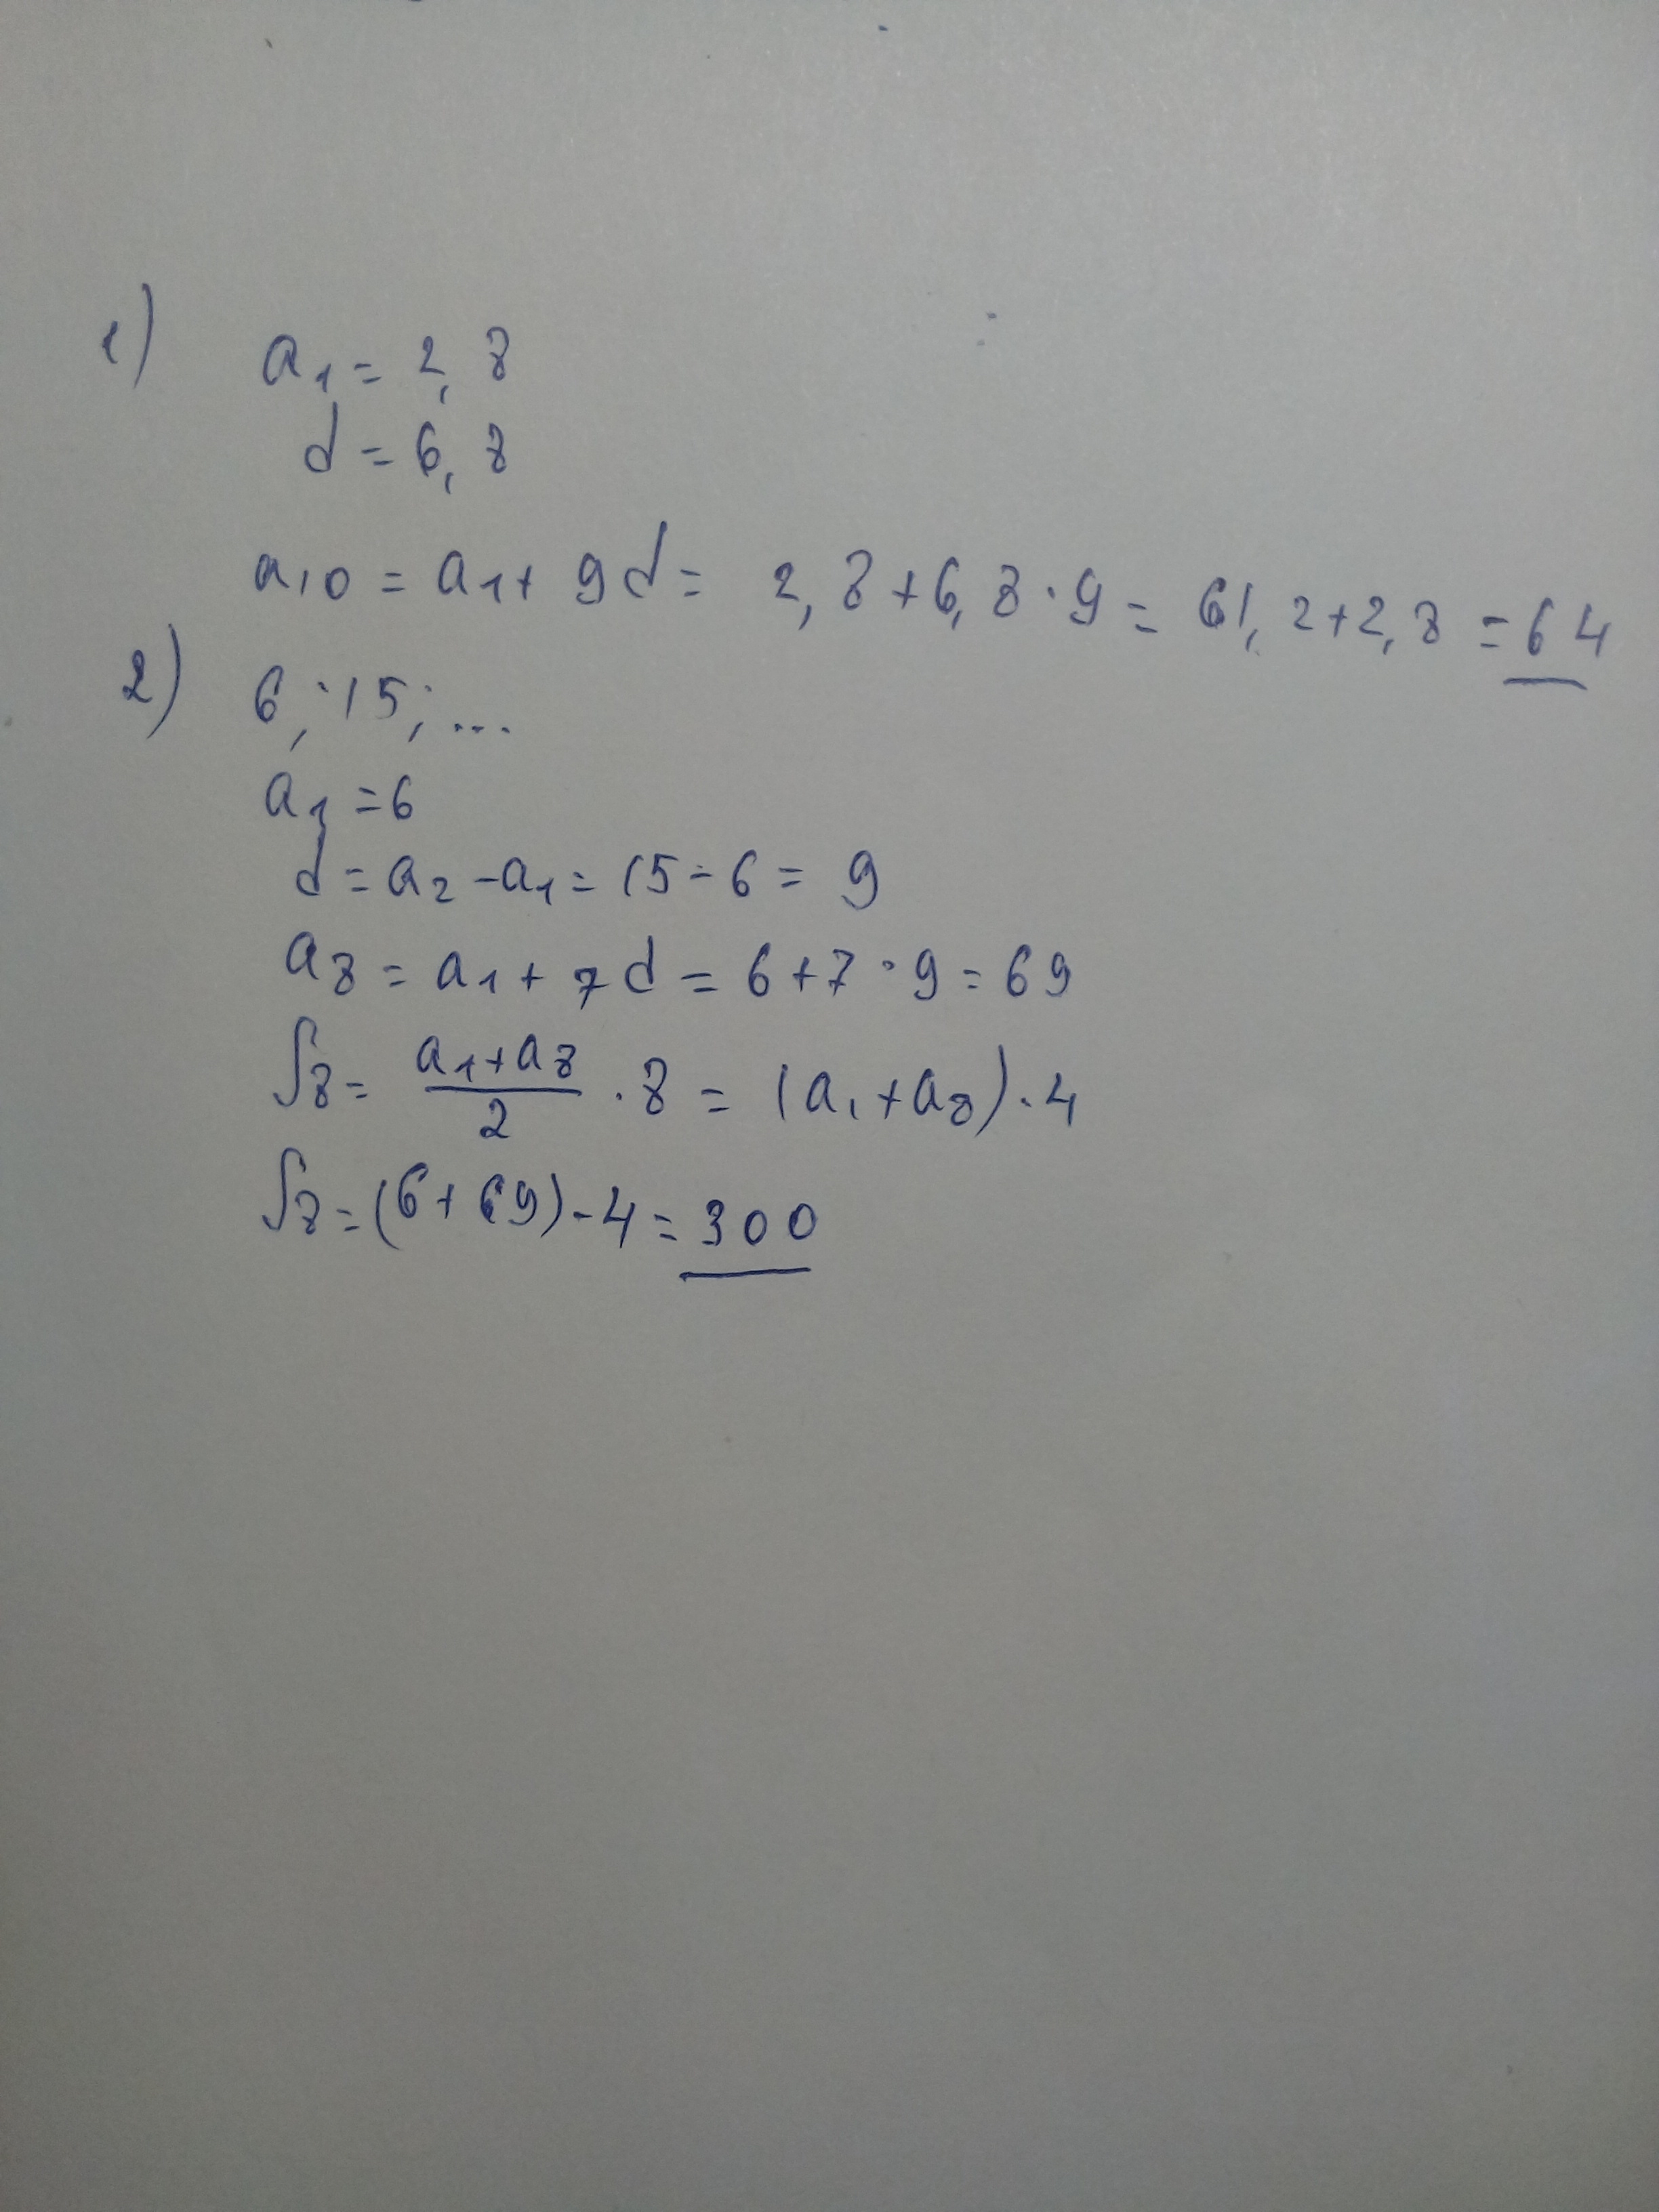 1) a₁ = 2,8
d = 6,8
a10 = a₁ + 9d = 2,8 + 6,8 · 9 = 61,2 + 2,8 = 64
2) 6; 15; ...
a₁ = 6
d = a₂ - a₁ = 15 - 6 = 9
a₈ = a₁ + 7d = 6 + 7 · 9 = 69
S₈ = (a₁ + a₈)/2 · 8 = (a₁ + a₈) · 4
S₈ = (6 + 69) · 4 = 300